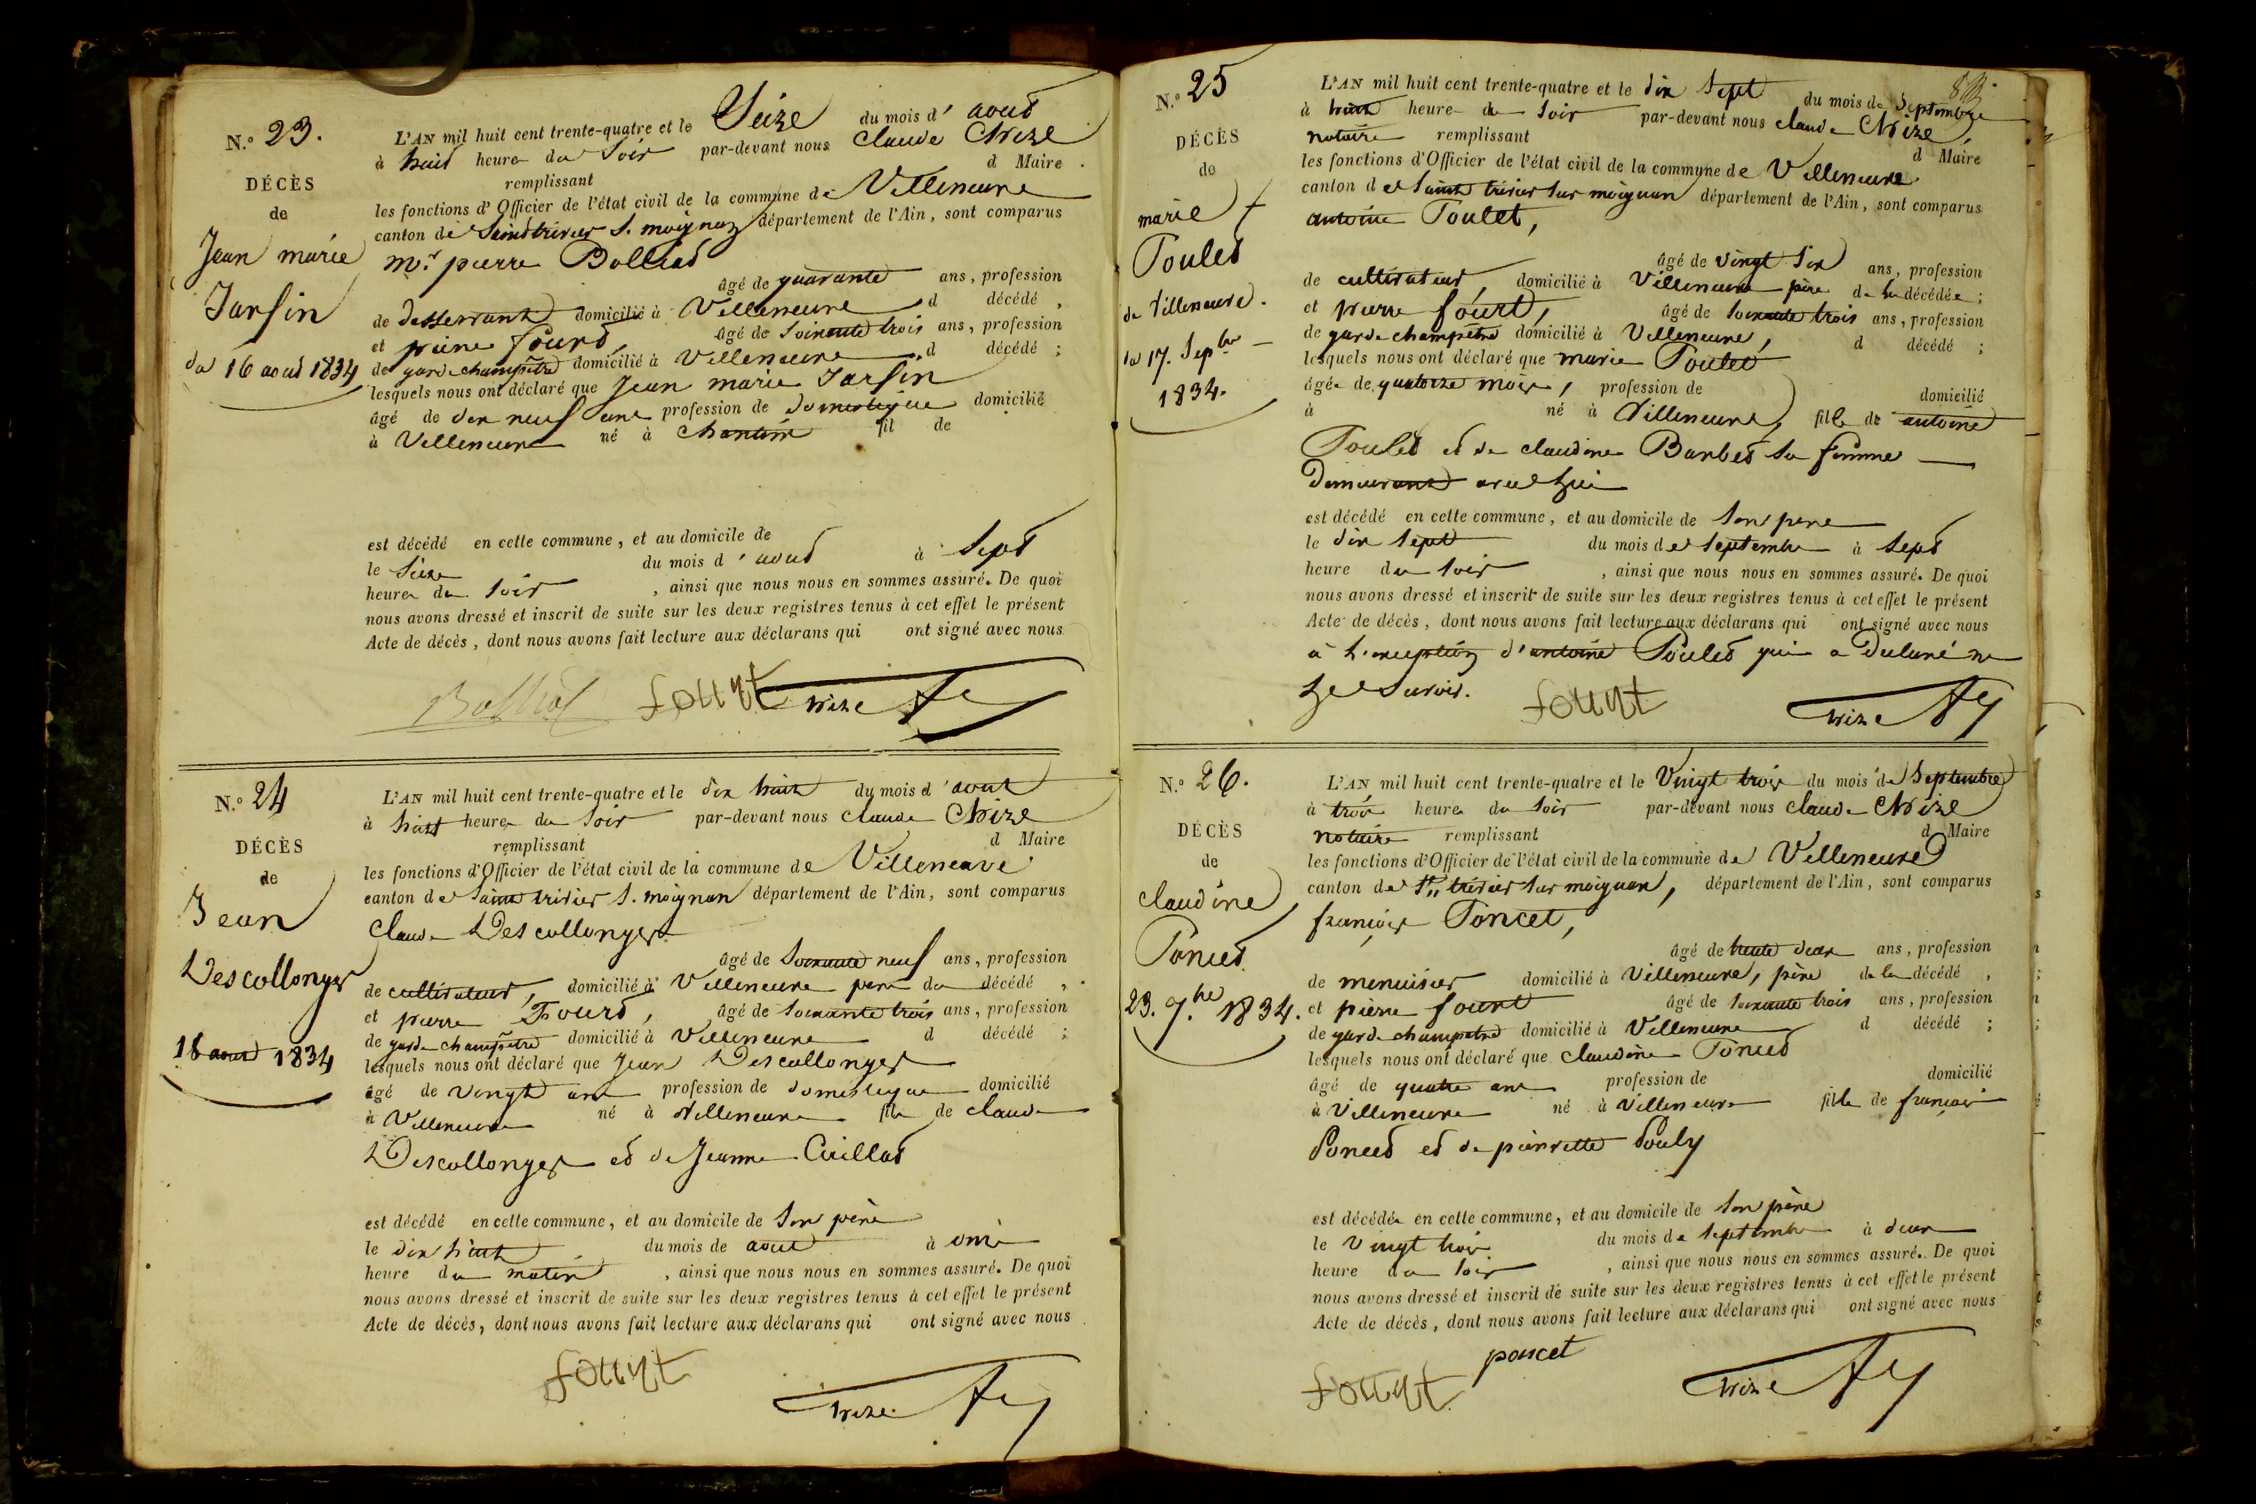 N.° 23.
DÉCÈS
de
Jean marie
Jarsin
du 16 aout 1834
L'AN mil huit cent trente-quatre et le Seize du mois d' aout
à huit heure du Soir par-devant nous Claude
d Maire
remplissant
les fonctions d'Officier de l'état civil de la commune de Villeneuve
canton de Saint trivier S. moignan département de l'Ain, sont comparus
mr. pierre Bolliat
âgé de quarante ans, profession
de desservant domicilié à Villeneuve d décédé,
et pierre fourt, âgé de Soixante trois ans, profession
de garde champêtre domicilié à Villeneuve, d décédé ;
lesquels nous ont déclaré que Jean marie Jarsin
âgé de dix neuf ans profession de domestique domicilié
à Villeneuve né à fil de
est décédé en cette commune, et au domicile de
le Seize du mois d' aout à Sept
heure du Soir, ainsi que nous nous en sommes assuré. De quoi
nous avons dressé et inscrit de suite sur les deux registres tenus à cet effet le présent
Acte de décès, dont nous avons fait lecture aux déclarans qui ont signé avec nous
Bolliat fourt
N.° 24
DÉCÈS
de
Jean
Descollonges
18 aout 1834
L'AN mil huit cent trente-quatre et le dix huit du mois d' aout
à huit heure du Soir par-devant nous Claude
d Maire
remplissant
les fonctions d'Officier de l'état civil de la commune de Villeneuve
canton de Saint trivier S. moignan département de l'Ain, sont comparus
Claude Descollonges
âgé de Soixante neuf ans, profession
de cultivateur, domicilié à Villeneuve pere du décédé,
et pierre Fourt, âgé de Soixante trois ans, profession
de garde champêtre domicilié à Villeneuve d décédé ;
lesquels nous ont déclaré que Jean Descollonges
âgé de vingt ans profession de domestique domicilié
à Villeneuve né à Villeneuve fils de claude
Descollonges et de Jeanne Cuillat
est décédé en cette commune, et au domicile de Son père
le dix huit du mois de aout à onze
heure du matin, ainsi que nous nous en sommes assuré. De quoi
nous avons dressé et inscrit de suite sur les deux registres tenus à cet effet le présent
Acte de décès, dont nous avons fait lecture aux déclarans qui ont signé avec nous
fourt
N.° 25
DÉCÈS
de
marie
Poulet
de Villeneuve.
du 17. Sepbre
1834.
L'AN mil huit cent trente-quatre et le dix Sept du mois de Septembre
à huit heure du Soir par-devant nous claude
notaire remplissant d Maire
les fonctions d'Officier de l'état civil de la commune de Villeneuve
canton de Saint trivier sur moignan département de l'Ain, sont comparus
antoine Poulet,
âgé de vingt Six ans, profession
de cultivateur, domicilié à Villeneuve père de la décédée ;
et pierre fourt, âgé de Soixante trois ans, profession
de garde champêtre domicilié à Villeneuve, d décédé ;
lesquels nous ont déclaré que marie Poulet
âgée de quatorze mois, profession de domicilié
à né à Villeneuve, fille de antoine
Poulet et de claudine Barbet sa femme
Demeurant avec lui
est décédé en cette commune, et au domicile de Son père
le dix Sept du mois de Septembre à Sept
heure du Soir, ainsi que nous nous en sommes assuré. De quoi
nous avons dressé et inscrit de suite sur les deux registres tenus à cet effet le présent
Acte de décès, dont nous avons fait lecture aux déclarans qui ont signé avec nous
à l'exception d'antoine Poulet qui a Declaré ne
le Savoir.
fourt
N.° 26.
DÉCÈS
de
claudine
Poncet
23. 7.bre 1834.
L'AN mil huit cent trente-quatre et le Vingt trois du mois de Septembre
à trois heure du Soir par-devant nous claude
notaire remplissant d Maire
les fonctions d'Officier de l'état civil de la commune de Villeneuve
canton de St. trivier sur moignan, département de l'Ain, sont comparus
françois Poncet,
âgé de trente deux ans, profession
de menuisier domicilié à Villeneuve, père de la décédé,
et pierre fourt âgé de Soixante trois ans, profession
de garde champêtre domicilié à Villeneuve d décédé ;
lesquels nous ont déclaré que claudine Poncet
âgé de quatre ans profession de domicilié
à Villeneuve né à Villeneuve fille de françois
Poncet et de pierrette Pouly
est décédée en cette commune, et au domicile de Son père
le Vingt trois du mois de Septembre à deux
heure du Soir, ainsi que nous nous en sommes assuré. De quoi
nous avons dressé et inscrit de suite sur les deux registres tenus à cet effet le présent
Acte de décès, dont nous avons fait lecture aux déclarans qui ont signé avec nous
poncet
fourt